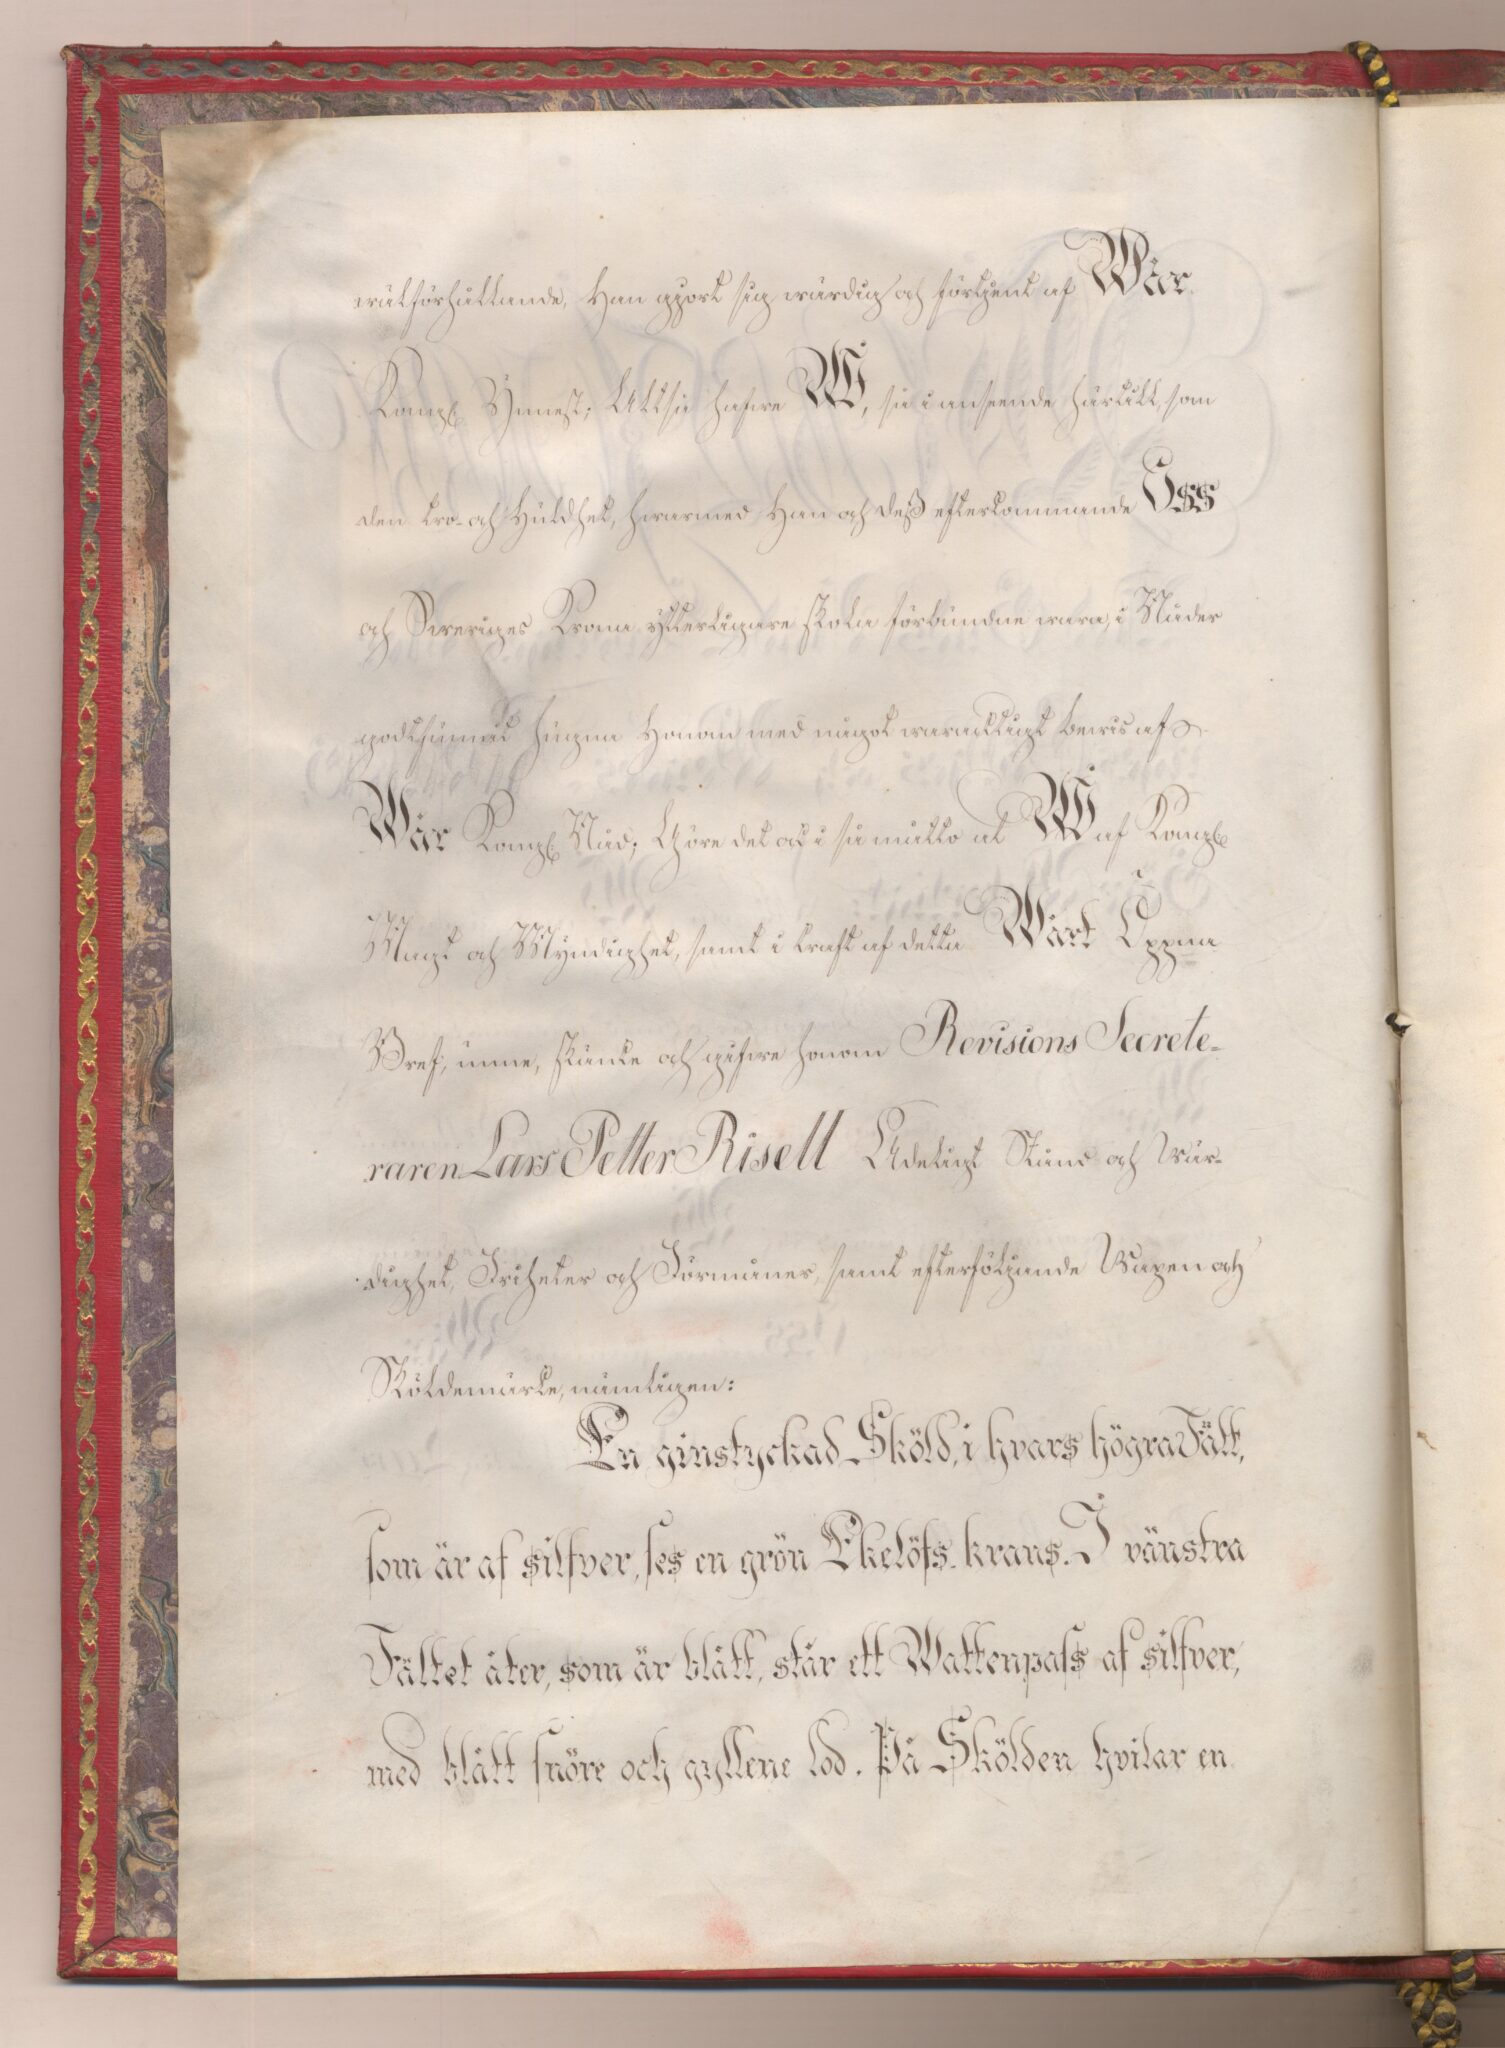 wälförhållande, Han gjort sig wärdig och förtjent af Wår
Kongl. Ynnest; Altså hafwe Wi, så i anseende härtill, som
den tro- och Huldhet, hwarmed Han och deß efterkommande Oss
och Sweriges Krona ytterligare skola förbundne wara, i Nåder
godtfunnit hugna Honom med något waracktigt bewis af
Wår Kongl. Nåd; Göre det ock i så måtto at Wi af Kongl.
Magt och Myndighet, samt i kraft af detta Wårt Öppna
Bref, unne, skänke och gifwe honom Revisions Secrete-
raren Lars Petter Risell Adeligt Stånd och Wär-
dighet, Friheter och Förmåner, samt efterföljande Wapen och
Sköldemärke, nämligen:
En ginstyckad Sköld, i hvars högra Fält,
som är af silfver, ses en grön Ekelöfs-krans. I vänstra
Fältet åter, som är blått, står ett Wattenpass af silfver,
med blått snöre och gyllene lod. På Skölden hvilar en